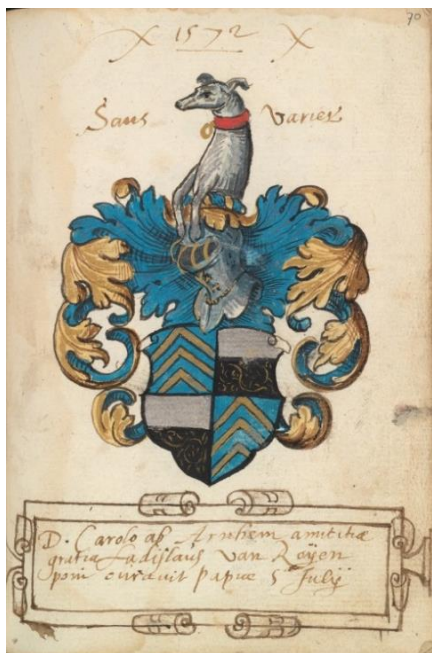 70
1572
Sans Varier
D. Carolo ab Arnhem amititiæ
gratia Ladislaus van Roÿen
poni curavit papiæ 5 Julÿ